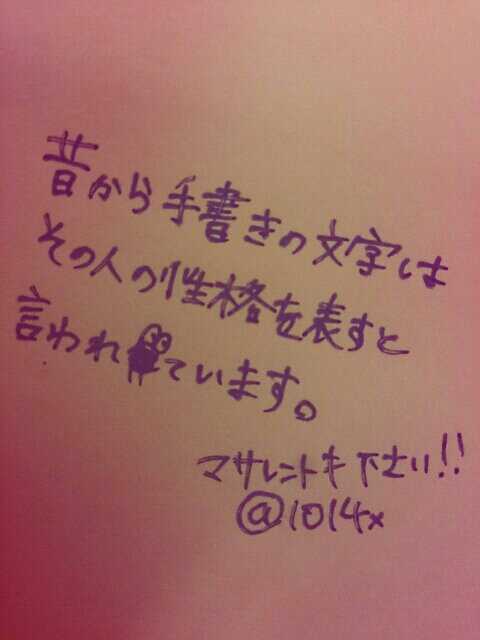 昔から手書きの文字は
その人の性格を表すと
言われています。
マサレントキ下さい!!
@1014x